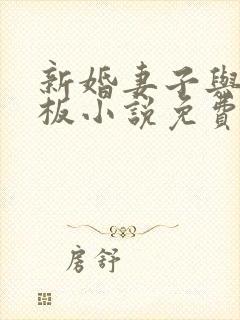 新婚妻子與
板小說免費
房舒